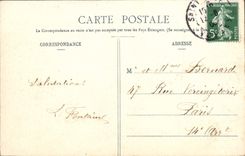 CARTE POSTALE
La Correspondance au recto n'est pas acceptée par tous les Pays Étrangers. (Se renseigner)
CORRESPONDANCE
ADRESSE
M' et Mme Bernard
Salutations
47 Rue Vercingétorix
L. Fontaine
Paris
14e Arrt